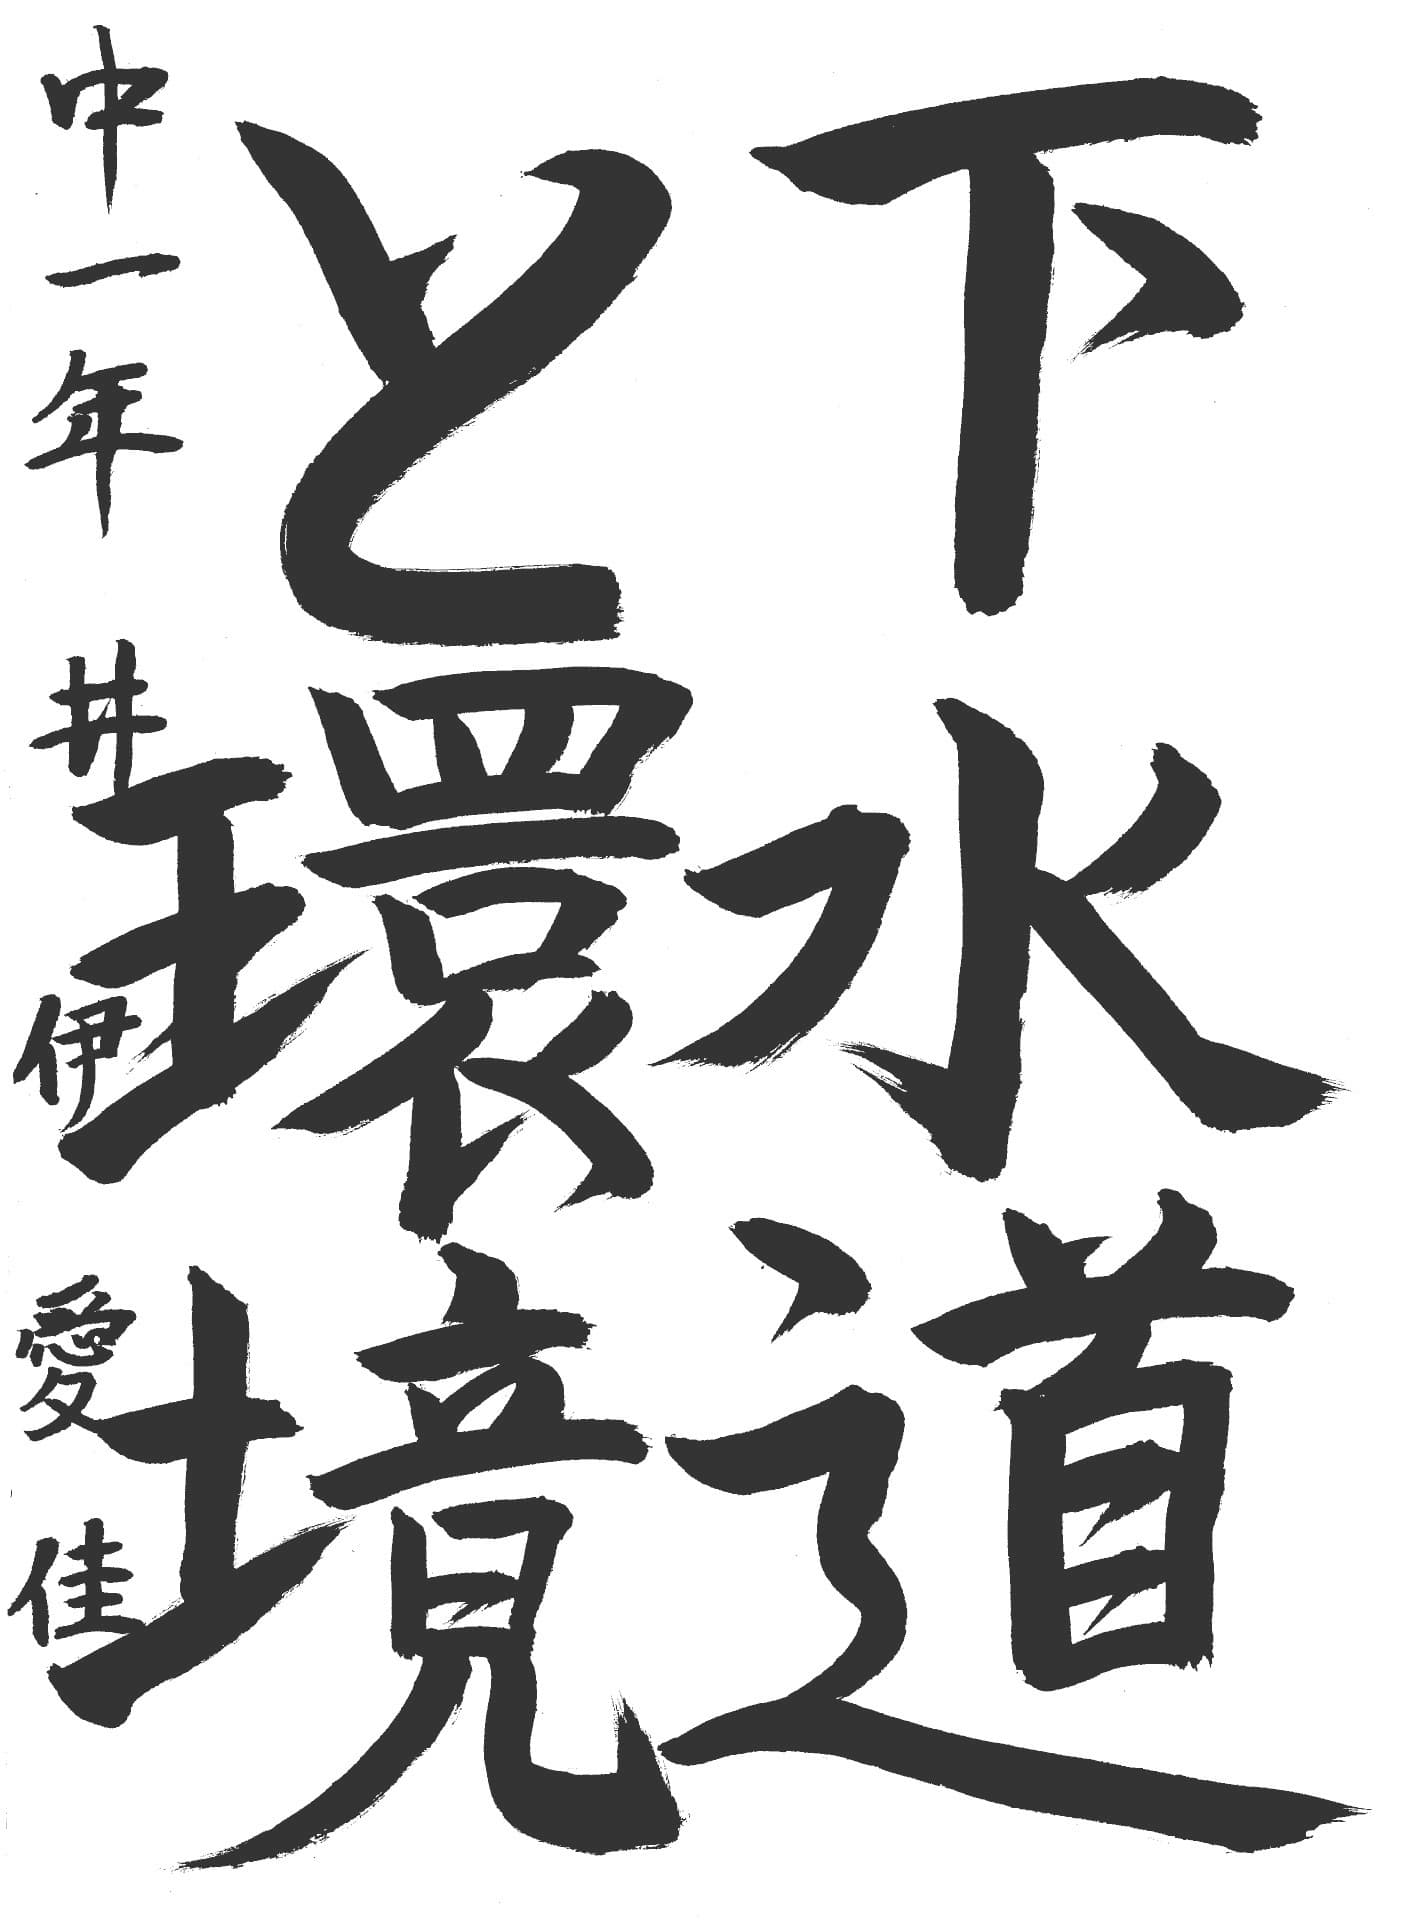 下水道
と環境
中一年 井伊愛佳